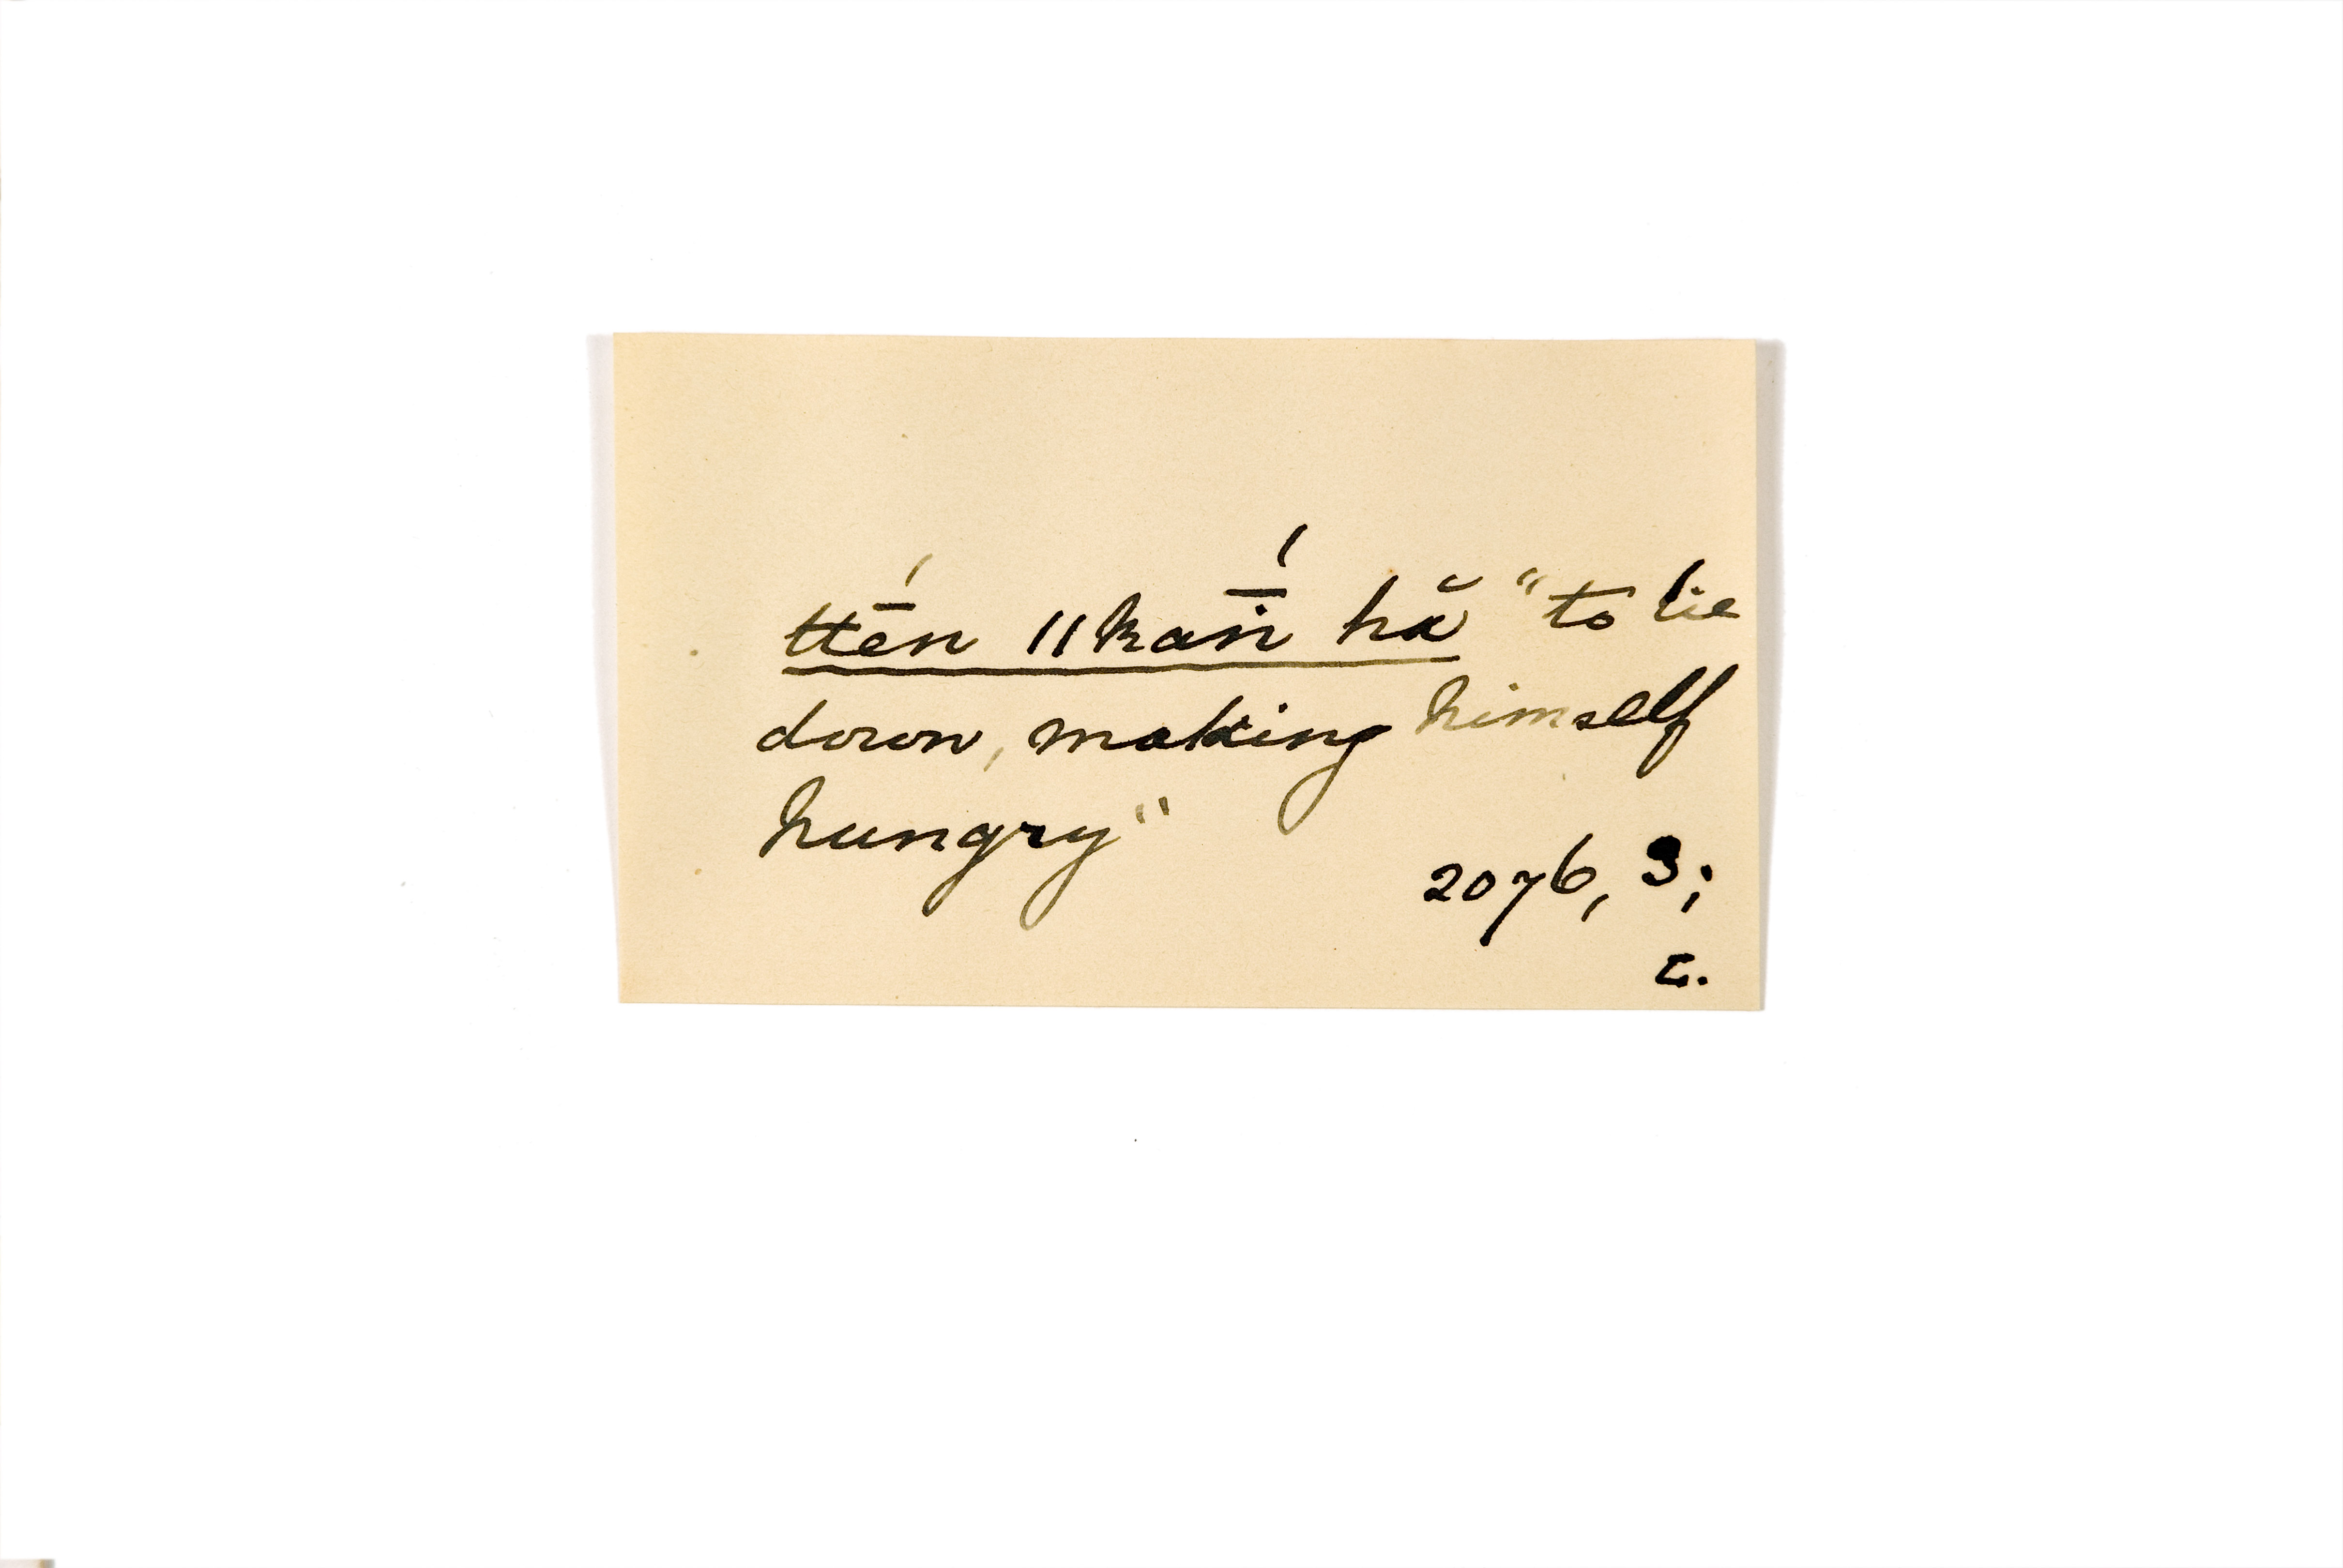 ttḗn ǁkań̄ hă "to lie
down, making himself
hungry"
2076, 3;
c.